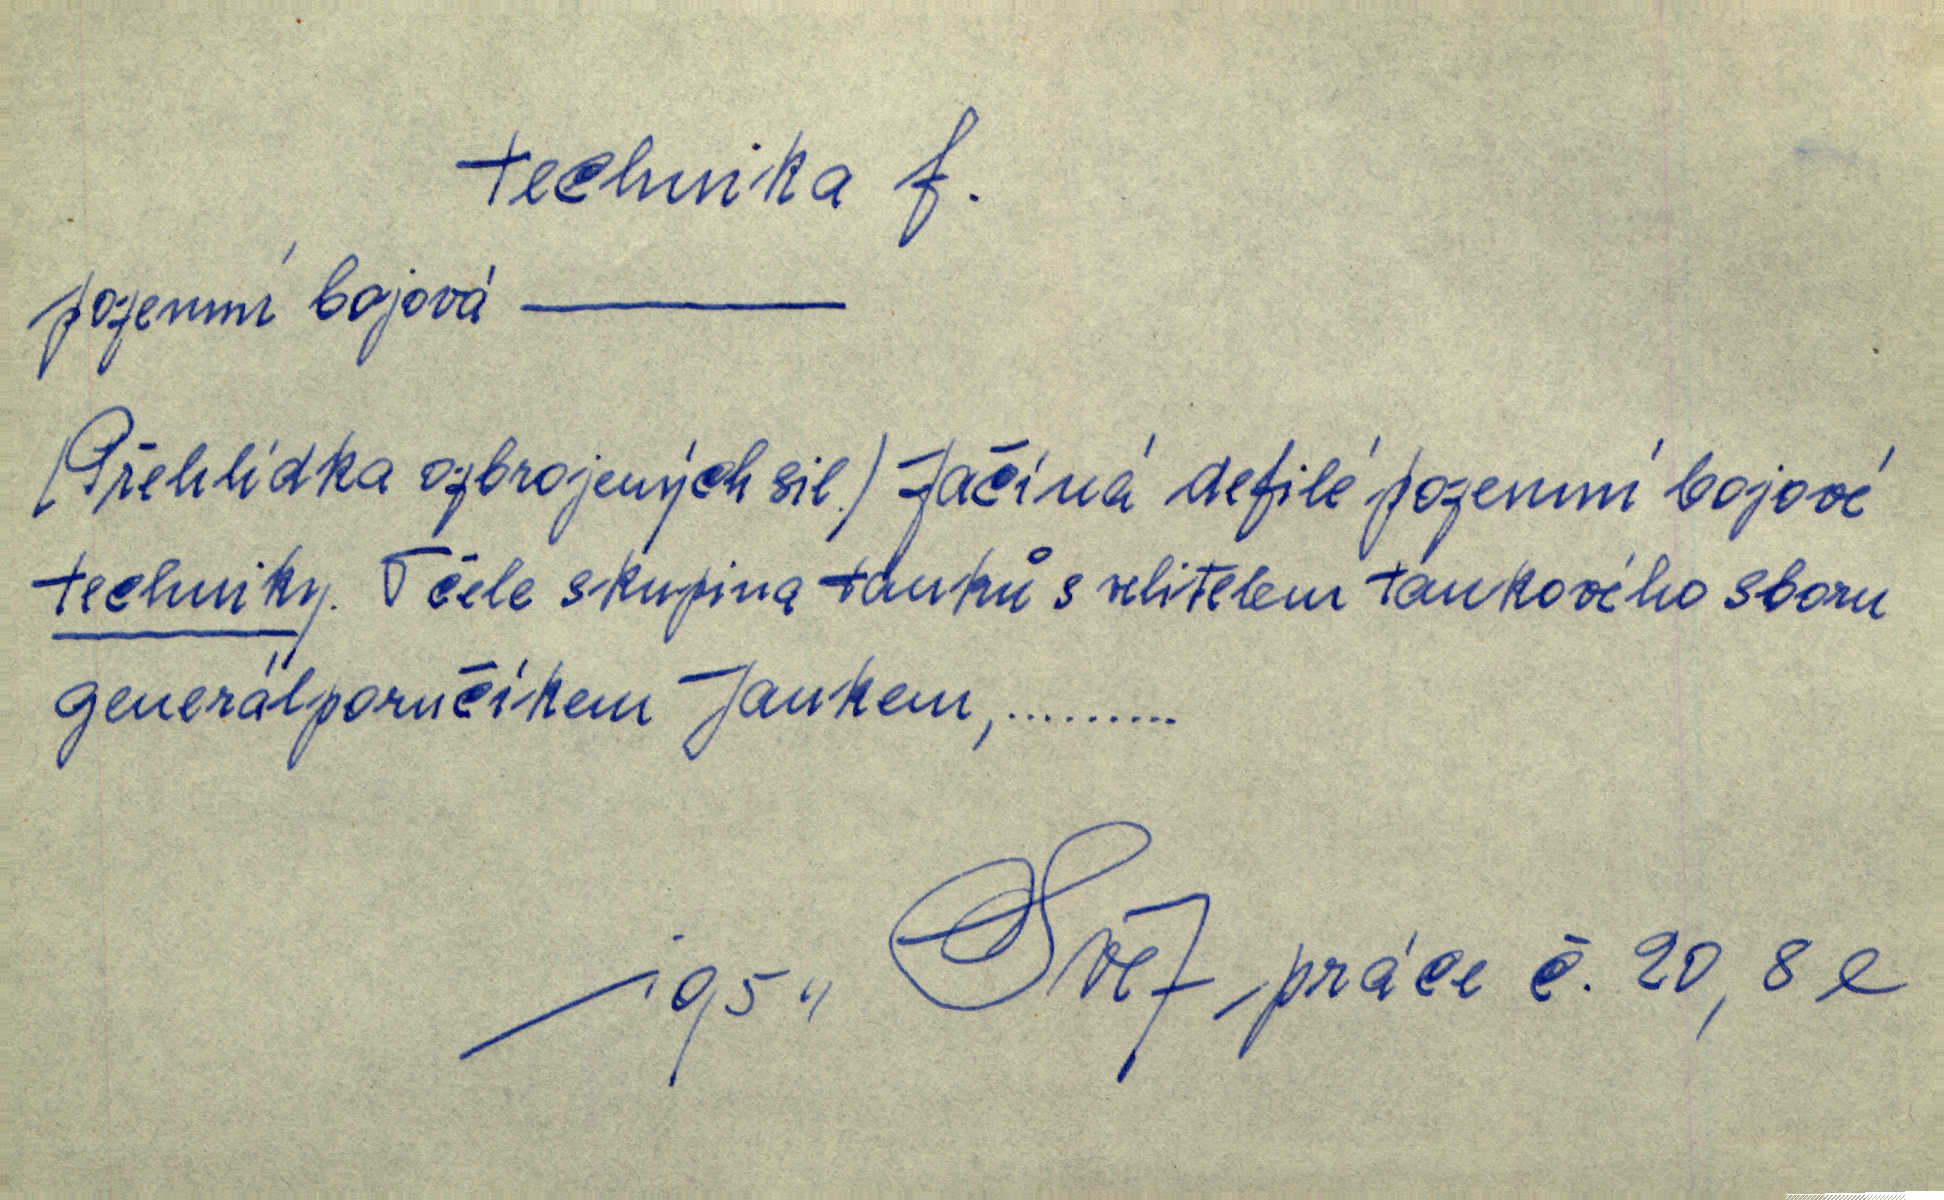 technika f.
pozemní bojová ———
(Přehlídka ozbrojených sil.) Začíná defilé pozemní bojové
techniky. V čele skupina tanků s velitelem tankového sboru
generálporučíkem Jankem,..........
1954 Svěz, práce č. 20, 8 e